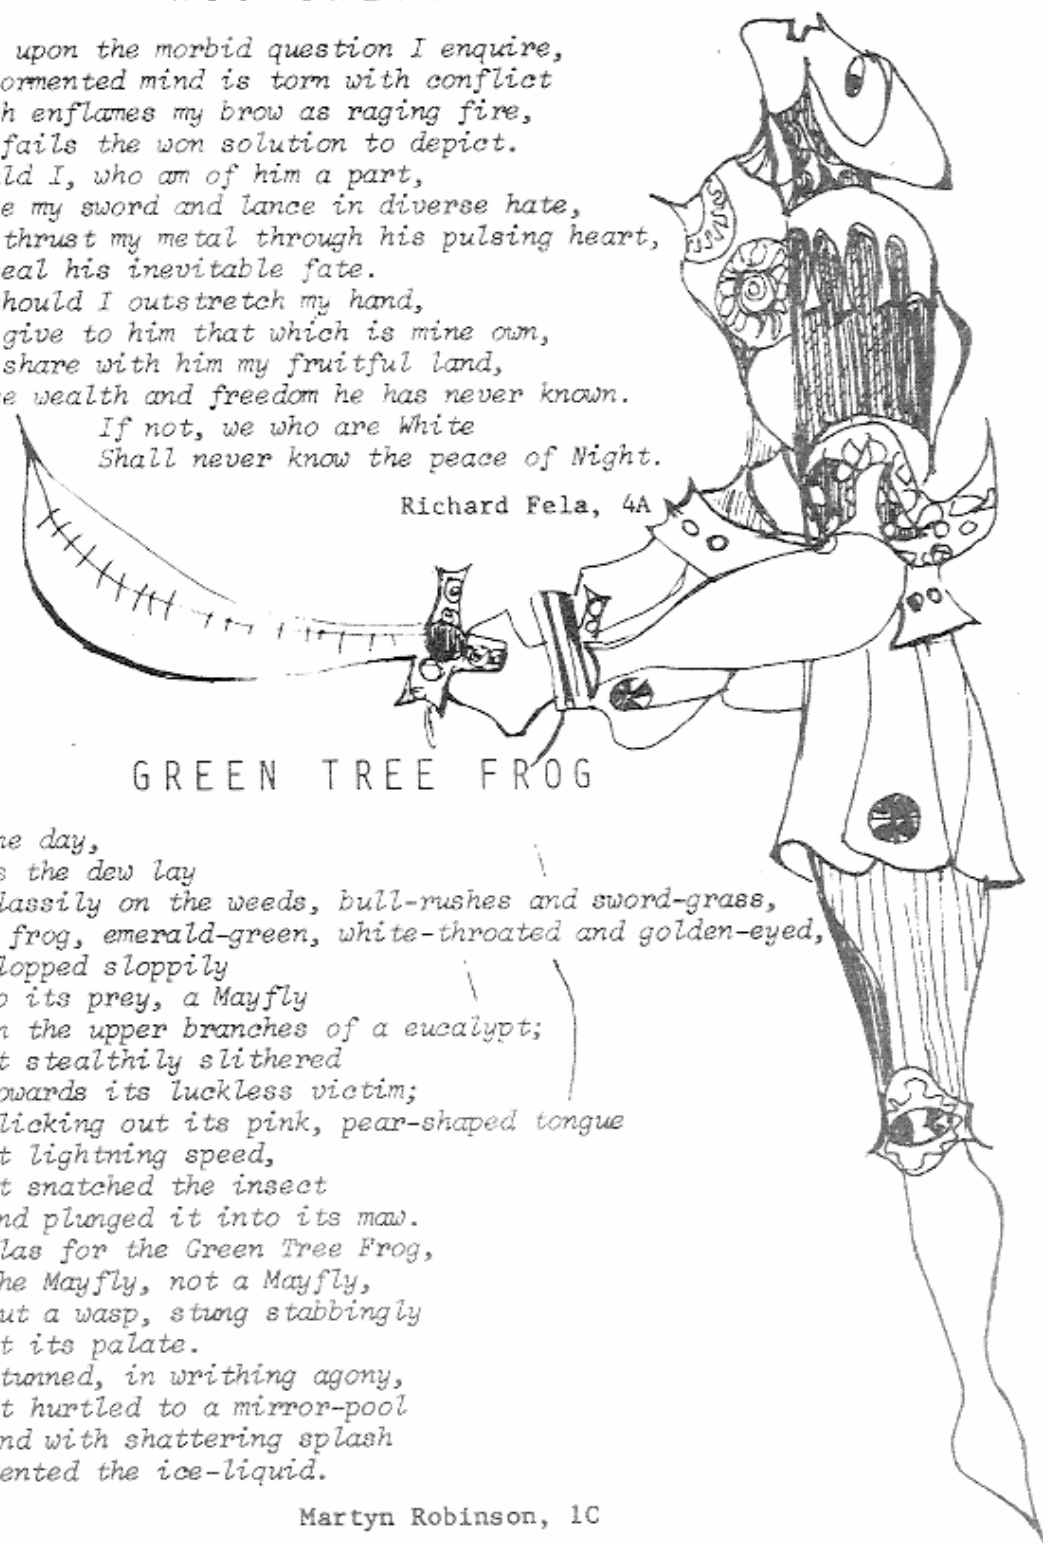 upon the morbid question I enquire,
ormented mind is torn with conflict
h enflames my brow as raging fire,
fails the won solution to depict.
ld I, who am of him a part,
e my sword and lance in diverse hate,
thrust my metal through his pulsing heart,
eal his inevitable fate.
hould I outstretch my hand,
give to him that which is mine own,
share with him my fruitful land,
e wealth and freedom he has never known.
If not, we who are White
Shall never know the peace of Night.
Richard Fela, 4A
GREEN TREE FROG
ne day,
s the dew lay
lassily on the weeds, bull-rushes and sword-grass,
frog, emerald-green, white-throated and golden-eyed,
lopped sloppily
o its prey, a Mayfly
n the upper branches of a eucalypt;
t stealthily slithered
owards its luckless victim;
licking out its pink, pear-shaped tongue
t lightning speed,
t snatched the insect
nd plunged it into its maw.
las for the Green Tree Frog,
he Mayfly, not a Mayfly,
ut a wasp, stung stabbingly
t its palate.
tunned, in writhing agony,
t hurtled to a mirror-pool
nd with shattering splash
ented the ice-liquid.
Martyn Robinson, 1C